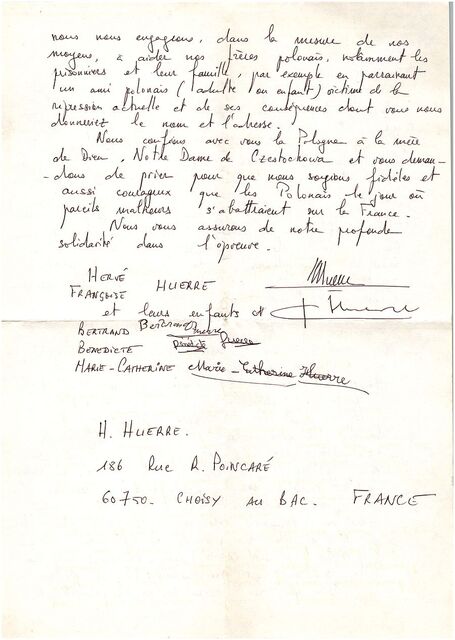 nous nous engageons, dans la mesure de nos
moyens, à aider nos frères polonais, notamment les
prisonniers et leur famille, par exemple en parrainant
un ami polonais (adulte ou enfant) victime de la
répression actuelle et de ses conséquences dont vous nous
donneriez le nom et l'adresse.
Nous confions avec vous la Pologne à la mère
de Dieu, Notre Dame de Czestochowa et vous deman-
-dons de prier pour que nous soyons fidèles et
aussi courageux que les Polonais le jour où
pareils malheurs s'abattraient sur la France.
Nous vous assurons de notre profonde
solidarité dans l'épreuve.
HERVÉ
FRANÇOISE HUERRE
Huerre
et leurs enfants
F Huerre
BERTRAND Bertrand Huerre
BENEDICTE Bénédicte Huerre
MARIE-CATHERINE Marie-Catherine Huerre
H. HUERRE.
186 Rue R. POINCARÉ
60750- CHOISY AU BAC. FRANCE